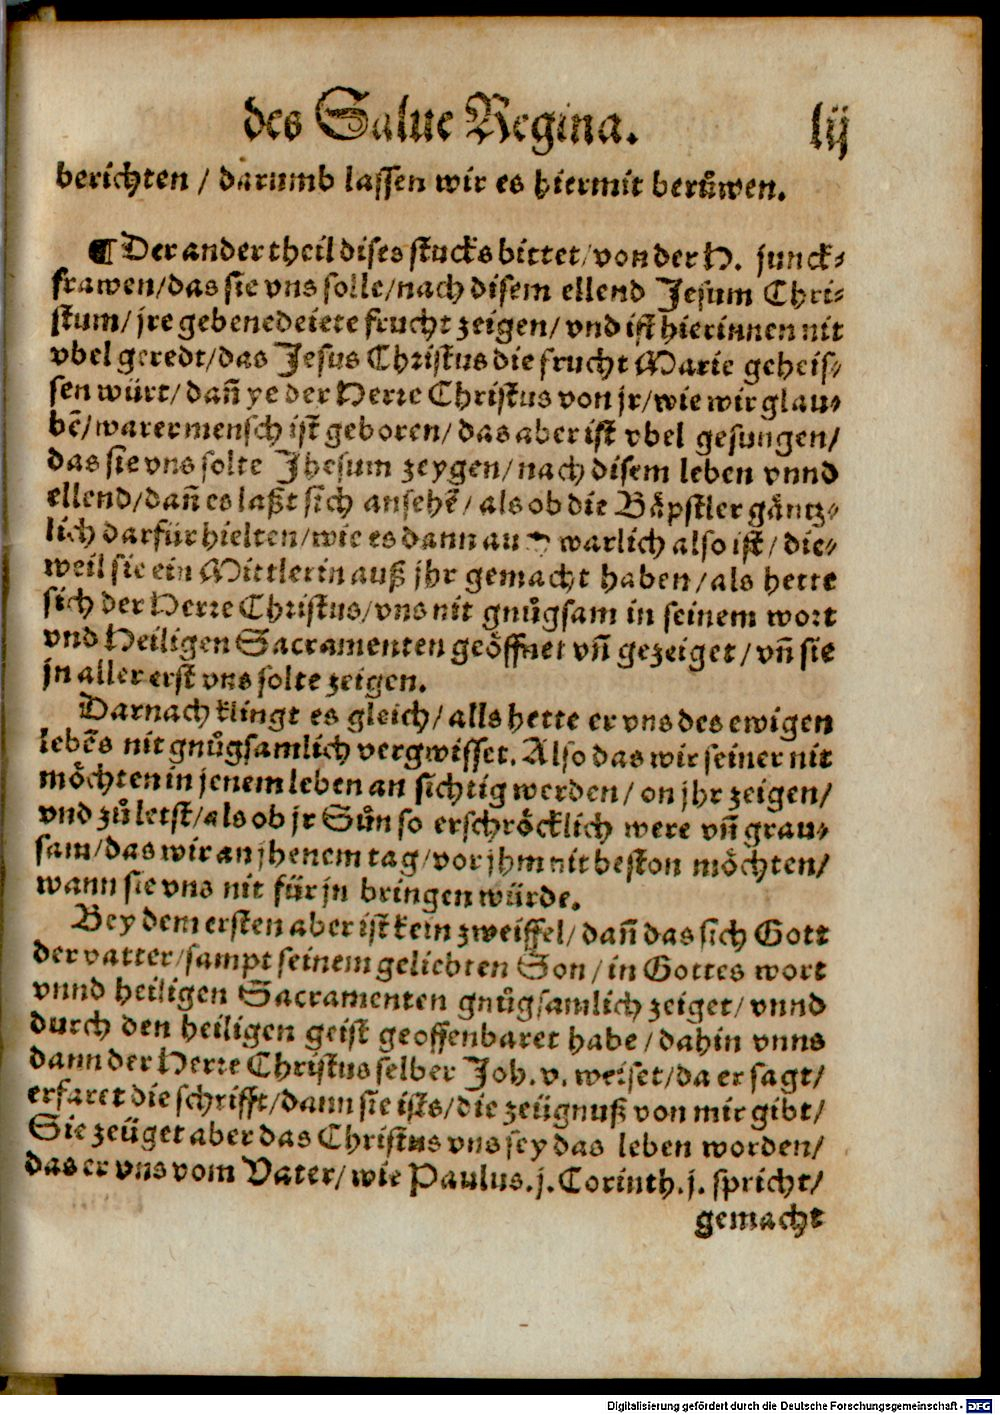 des Salue Regina. lij
berichten / darumb lassen wir es hiermit berůwen.
¶ Der ander theil dises stucks bittet/ von der H. junck-
frawen/ das sie vns solle/ nach disem ellend Jesum Chri-
stum/ jre gebenedeiete frucht zeigen/ vnd ist hierinnen nit
vbel geredt/ das Jesus Christus die frucht Marie geheis-
sen würt/ dañ ye der Herre Christus von jr/ wie wir glau-
bẽ/ warer mensch ist geboren/ das aber ist vbel gesungen/
das sie vns solte Jhesum zeygen/ nach disem leben vnnd
ellend/ dañ es laßt sich ansehẽ/ als ob die Bäpstler gäntz-
lich darfür hielten/ wie es dann auch warlich also ist/ die-
weil sie ein Mittlerin auß jhr gemacht haben/ als hette
sich der Herre Christus/ vns nit gnůgsam in seinem wort
vnd Heiligen Sacramenten geöffnet vñ gezeiget/ vñ sie
jn aller erst vns solte zeigen.
Darnach klingt es gleich/ alls hette er vns des ewigen
lebẽs nit gnůgsamlich vergwisset. Also das wir seiner nit
möchten in jenem leben an sichtig werden/ on jhr zeigen/
vnd zů letst/ als ob jr Sůn so erschröcklich were vñ grau-
sam/ das wir an jhenem tag/ vor jhm nit beston möchten/
wann sie vns nit für jn bringen würde.
Bey dem ersten aber ist kein zweiffel/ dañ das sich Gott
der vatter/ sampt seinem geliebten Son/ in Gottes wort
vnnd heiligen Sacramenten gnůgsamlich zeiget/ vnnd
durch den heiligen geist geoffenbaret habe/ dahin vnns
dann der Herre Christus selber Joh. v. weiset/ da er sagt/
erfaret die schrifft/ dann sie ists/ die zeügnuß von mir gibt/
Sie zeüget aber das Christus vns sey das leben worden/
das er vns vom Vater/ wie Paulus. j. Corinth. j. spricht/
gemacht
Digitalisierung gefördert durch die Deutsche Forschungsgemeinschaft - DFG